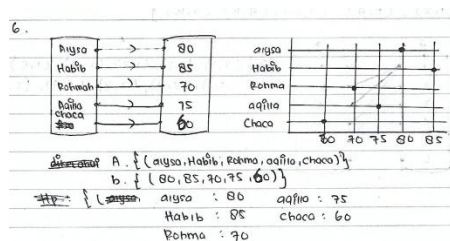 6.
Aiysa 80
Habib 85
Rohmah 70
Aqilla 75
chaca 60
aiysa
Habib
Rohma
aqilla
Chaca
60 70 75 80 85
A. {(aiysa, Habib, Rohma, aqilla, chaca)}
b. {(80, 85, 70, 75, 60)}
Hp : {( aiysa : 80 aqilla : 75
Habib : 85 chaca : 60
Rohma : 70